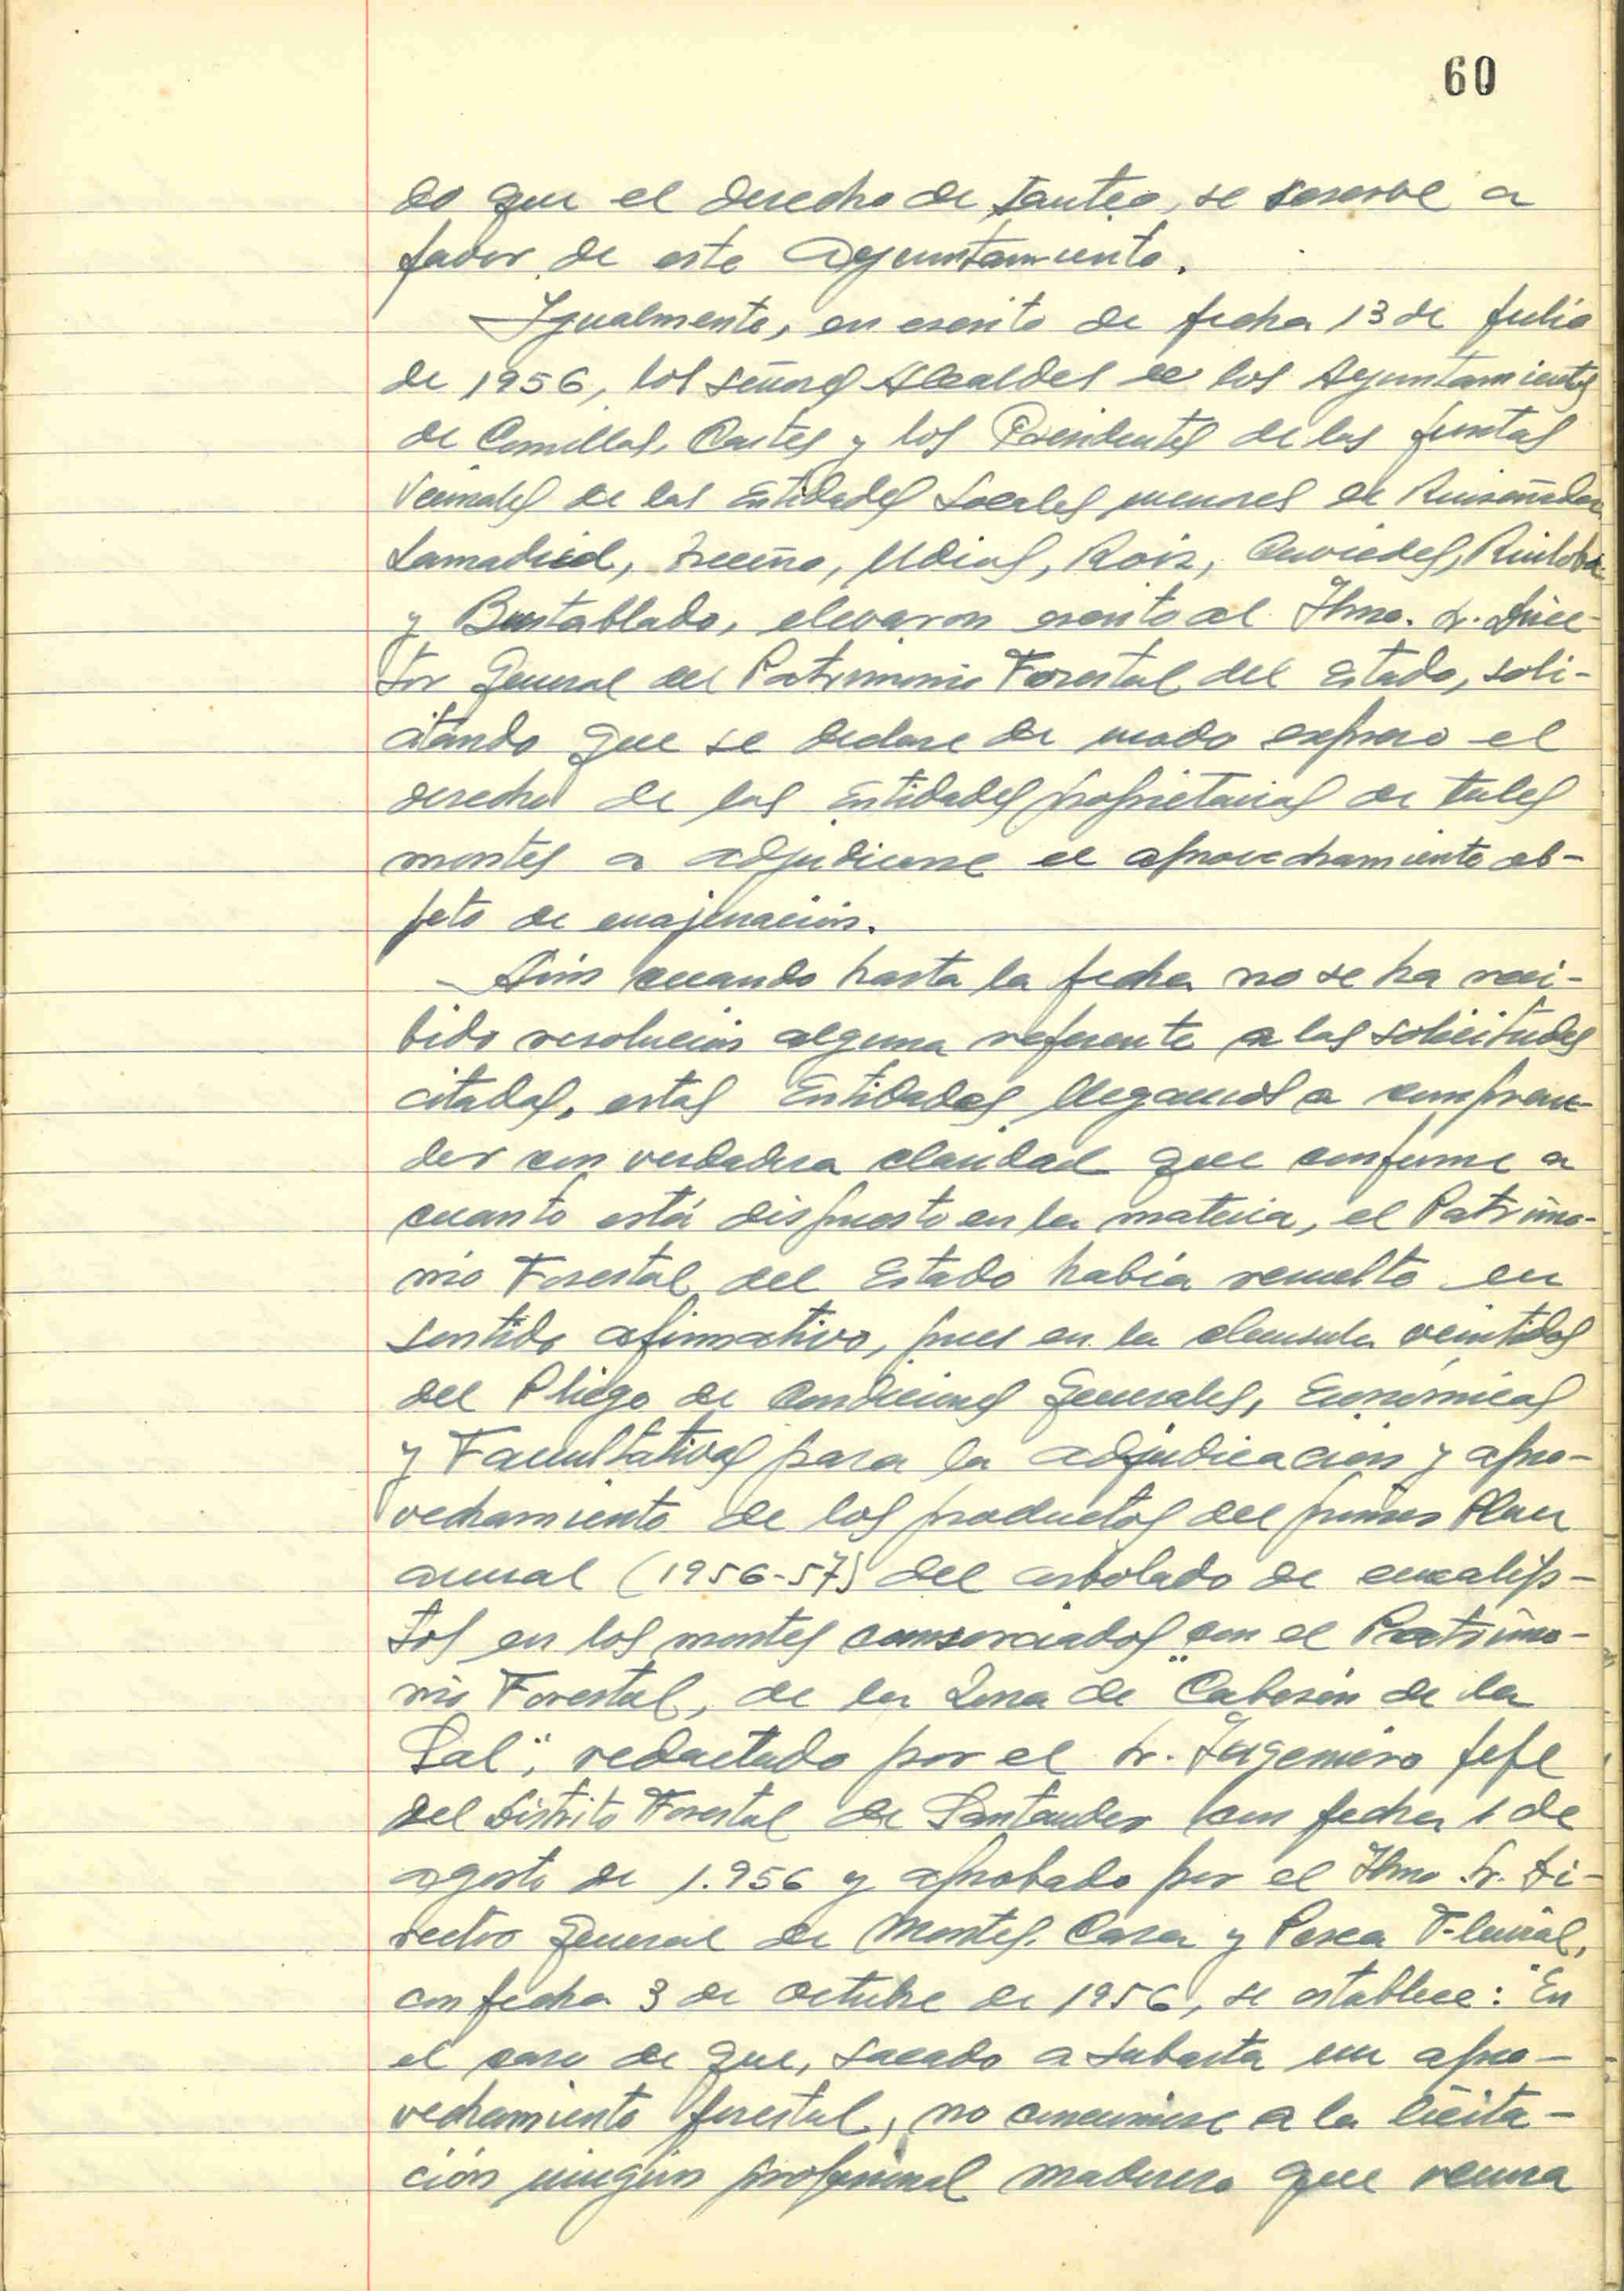 60
do que el derecho de tanteo, se reserve a
favor de este Ayuntamiento.
Igualmente, en escrito de fecha 13 de Julio
de 1956, los señores Alcaldes de los Ayuntamientos
de Comillas, Cartes y los Presidentes de las Juntas
Vecinales de las Entidades Locales menores de Ruiseñada,
Lamadrid, Treceño, Udias, Roiz, Caviedes, Ruiloba
y Bustablado, elevaron escrito al Ilmo. Sr. Direc-
tor General del Patrimonio Forestal del Estado, soli-
citando que se declare de modo expreso el
derecho de las Entidades propietarias de tales
montes a adjudicarse el aprovechamiento ob-
jeto de enajenación.
Aún cuando hasta la fecha no se ha reci-
bido resolución alguna referente a las solicitudes
citadas, estas Entidades llegamos a compren-
der con verdadera claridad que conforme a
cuanto está dispuesto en la materia, el Patrimo-
nio Forestal del Estado había resuelto en
sentido afirmativo, pues en la clausula veintidos
del Pliego de Condiciones Generales, Económicas
y Facultativas para la adjudicación y apro-
vechamiento de los productos del primer Plan
anual (1956-57) del arbolado de eucalip-
tos en los montes consorciados con el Patrimo-
nio Forestal, de la Zona de "Cabezón de la
Sal", redactado por el Sr. Ingeniero Jefe
del Distrito Forestal de Santander con fecha 1 de
agosto de 1.956 y aprobado por el Ilmo Sr. Di-
rector General de Montes, Caza y Pesca Fluvial,
con fecha 3 de octubre de 1956, se establece: "En
el caso de que, sacado a subasta un apro-
vechamiento forestal, no concurriese a la licita-
ción ningún profesional maderero que reuna